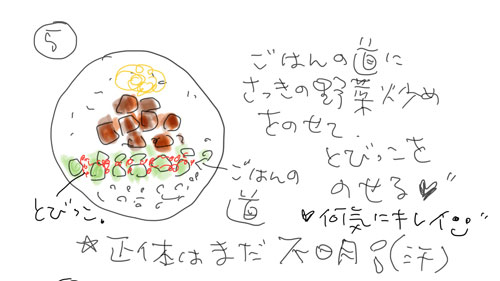 5
ごはんの道に
さっきの野菜炒め
をのせて、
とびっこを
のせる♥"
♥何気にキレイ
ごはんの
道
とびっこ。
☆正体はまだ不明る(汗)